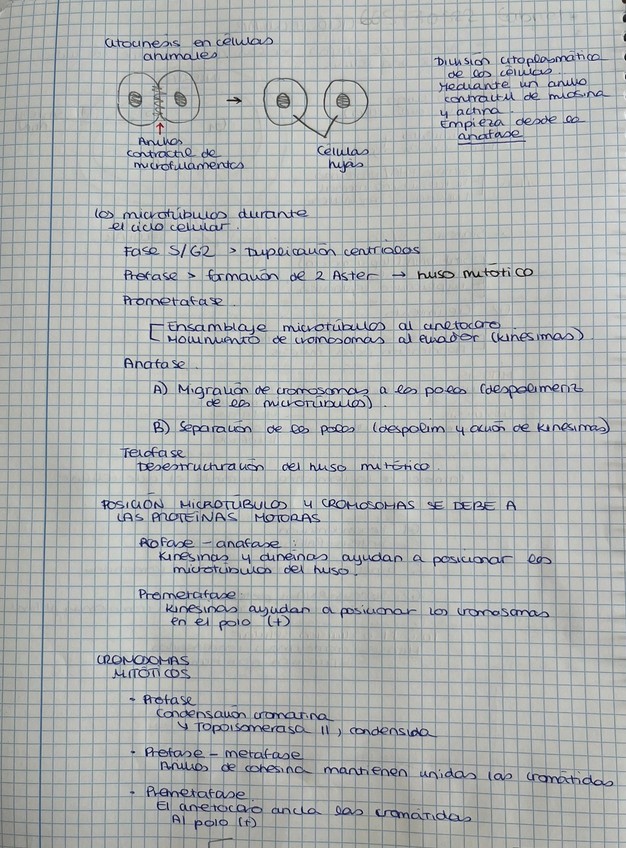 Citocinesis en células
animales
División citoplasmática
de las células
Mediante un anillo
contráctil de miosina
y actina
Empieza desde la
anafase
Anillos
contráctil de
microfilamentos
Células
hijas
Los microtúbulos durante
el ciclo celular.
Fase S/G2 > Duplicación centriolos
Profase > formación de 2 Aster → huso mitótico
Prometafase
Ensamblaje microtúbulos al cinetocoro
Movimiento de cromosomas al ecuador (kinesimas)
Anafase.
A) Migración de cromosomas a los polos (despolimeriz
de los microtúbulos)
B) Separación de los polos (despolim y acción de kinesimas)
Telofase
Desestructuración del huso mitótico.
POSICIÓN MICROTÚBULOS Y CROMOSOMAS SE DEBE A
LAS PROTEINAS MOTORAS
Profase - anafase:
Kinesinas y dineinas ayudan a posicionar los
microtúbulos del huso.
Prometafase
Kinesinas ayudan a posicionar los cromosomas
en el polo (+)
CROMOSOMAS
MITÓTICOS
- Profase
Condensación cromatina
↳ Topoisomerasa II, condensida
- Profase - metafase
Anillos de cohesina mantienen unidas las cromátidas
- Prometafase
El cinetocoro ancla las cromátidas
Al polo (+)